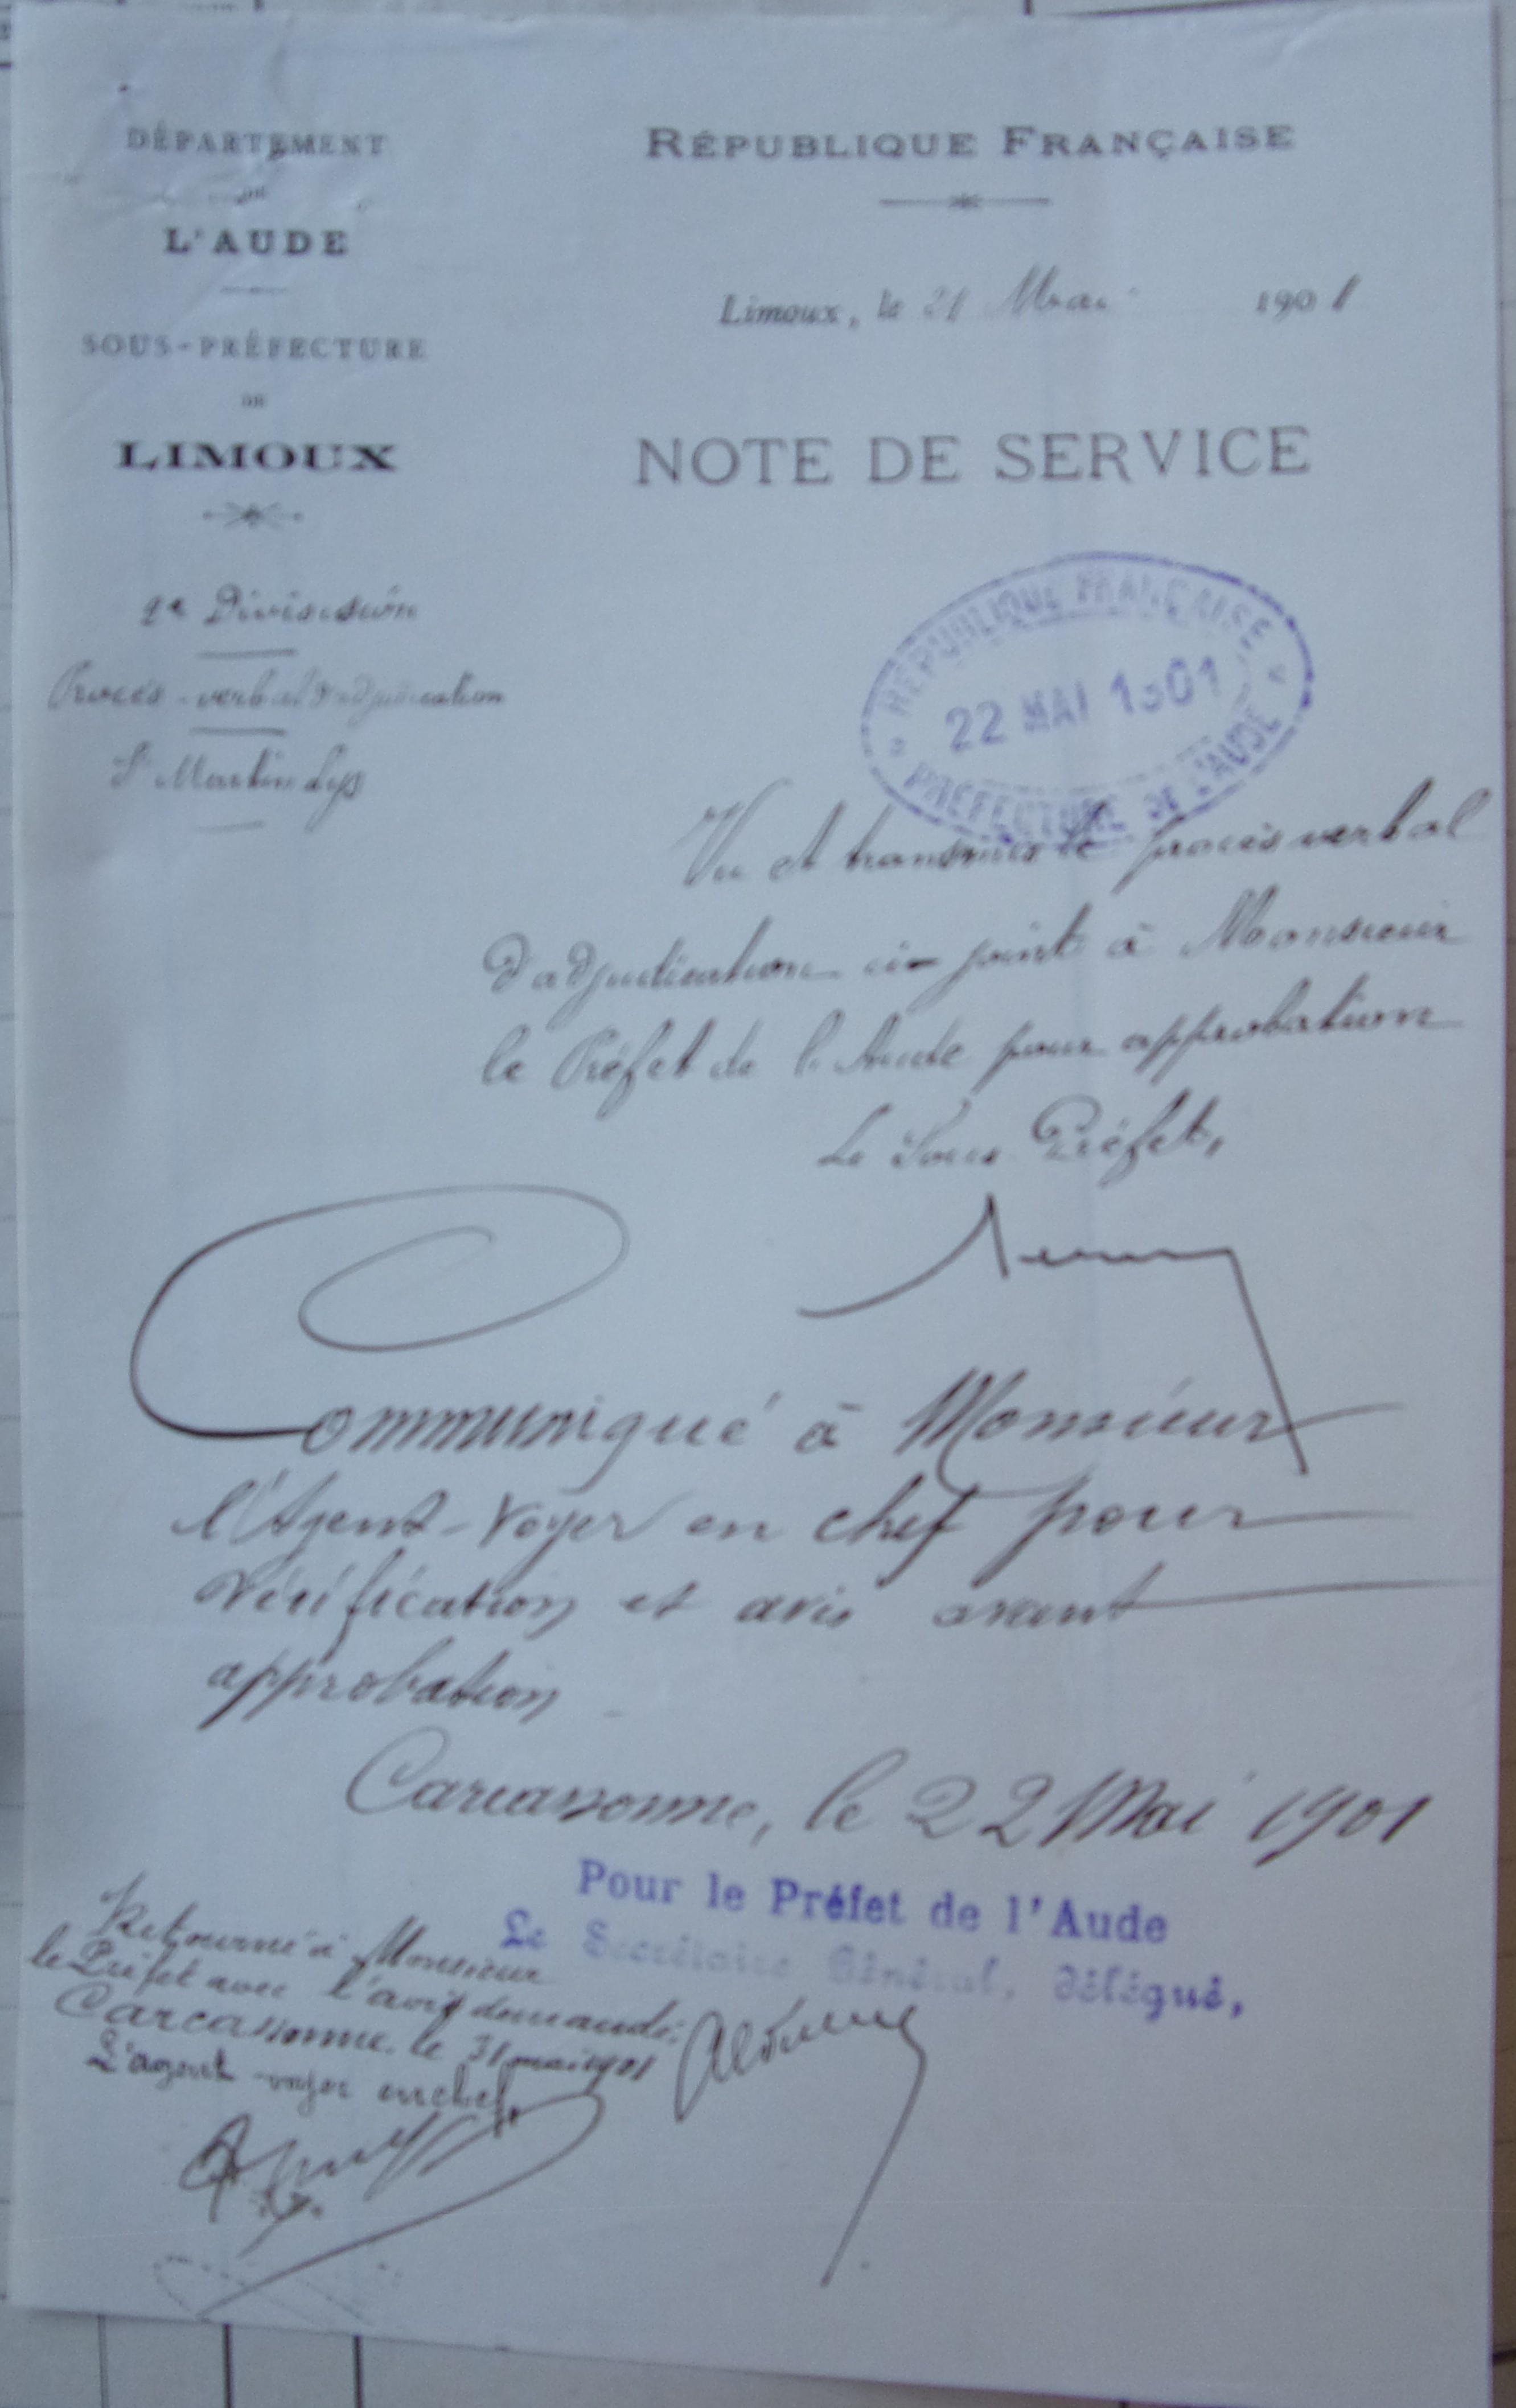 DÉPARTEMENT
DE
L'AUDE
SOUS-PRÉFECTURE
DE
LIMOUX
2e Division
Procès-verbal d'adjudication
St Martin Lys
RÉPUBLIQUE FRANÇAISE
Limoux, le 21 Mai 1901
NOTE DE SERVICE
RÉPUBLIQUE FRANÇAISE
22 MAI 1901
PRÉFECTURE DE L'AUDE
Vu et transmis le procès verbal
d'adjudication ci-joint à Monsieur
le Préfet de l'Aude pour approbation
Le Sous Préfet,
Communiqué à Monsieur
l'Agent-Voyer en chef pour
vérification et avis avant
approbation
Carcassonne, le 22 Mai 1901
Pour le Préfet de l'Aude
Le Secrétaire Général, délégué,
Retourné à Monsieur
le Préfet avec l'avis demandé.
Carcassonne, le 31 mai 1901
L'agent-voyer en chef,